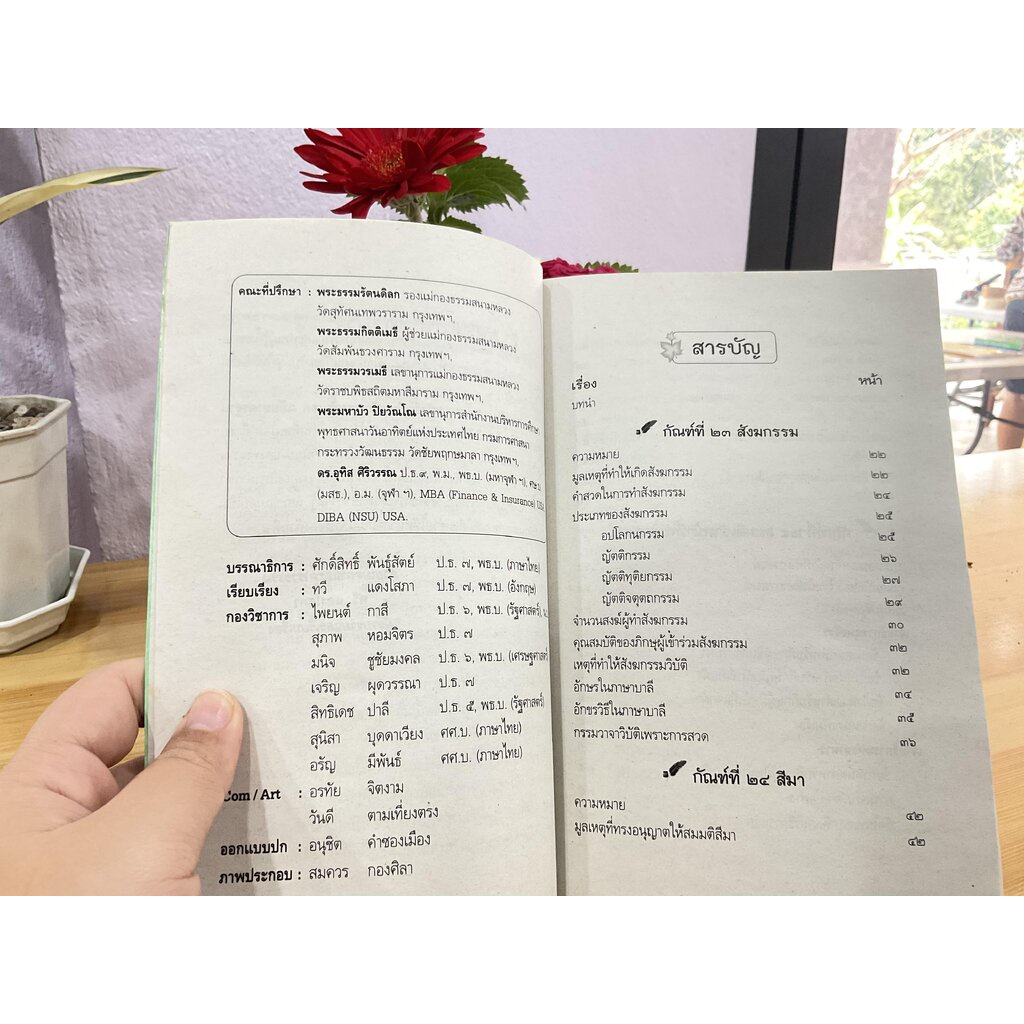 คณะที่ปรึกษา : พระธรรมรัตนดิลก รองแม่กองธรรมสนามหลวง
วัดสุทัศนเทพวราราม กรุงเทพฯ,
พระธรรมกิตติเมธี ผู้ช่วยแม่กองธรรมสนามหลวง
วัดสัมพันธวงศาราม กรุงเทพฯ,
พระธรรมวรเมธี เลขานุการแม่กองธรรมสนามหลวง
วัดราชบพิธสถิตมหาสีมาราม กรุงเทพฯ,
พระมหาบัว ปิยวัณโณ เลขานุการสำนักงานบริหารการศึกษา
พุทธศาสนาวันอาทิตย์แห่งประเทศไทย กรมการศาสนา
กระทรวงวัฒนธรรม วัดชัยพฤกษมาลา กรุงเทพฯ,
ดร.อุทิส ศิริวรรณ ป.ธ.๙, พ.ม., พธ.บ. (มหาจุฬา ฯ), ศษ.บ.
(มสธ.), อ.ม. (จุฬา ฯ), MBA (Finance & Insurance) USA
DIBA (NSU) USA.
บรรณาธิการ : ศักดิ์สิทธิ์ พันธุ์สัตย์ ป.ธ. ๗, พธ.บ. (ภาษาไทย)
เรียบเรียง : ทวี แดงโสภา ป.ธ. ๗, พธ.บ. (อังกฤษ)
กองวิชาการ : ไพยนต์ กาสี ป.ธ. ๖, พธ.บ. (รัฐศาสตร์),
สุภาพ หอมจิตร ป.ธ. ๗
มนิจ ชูชัยมงคล ป.ธ. ๖, พธ.บ. (เศรษฐศาสตร์
เจริญ ผุดวรรณา ป.ธ. ๗
สิทธิเดช ปาลี ป.ธ. ๕, พธ.บ. (รัฐศาสตร์)
สุนิสา บุดดาเวียง ศศ.บ. (ภาษาไทย)
อรัญ มีพันธ์ ศศ.บ. (ภาษาไทย)
Com / Art : อรทัย จิตงาม
วันดี ตามเที่ยงตรง
ออกแบบปก : อนุชิต คำซองเมือง
ภาพประกอบ : สมควร กองศิลา
สารบัญ
เรื่อง หน้า
บทนำ
กัณฑ์ที่ ๒๓ สังฆกรรม
ความหมาย ๒๒
มูลเหตุที่ทำให้เกิดสังฆกรรม ๒๒
คำสวดในการทำสังฆกรรม ๒๔
ประเภทของสังฆกรรม ๒๕
อปโลกนกรรม ๒๕
ญัตติกรรม ๒๖
ญัตติทุติยกรรม ๒๗
ญัตติจตุตถกรรม ๒๙
จำนวนสงฆ์ผู้ทำสังฆกรรม ๓๐
คุณสมบัติของภิกษุผู้เข้าร่วมสังฆกรรม ๓๒
เหตุที่ทำให้สังฆกรรมวิบัติ ๓๒
อักษรในภาษาบาลี ๓๔
อักขรวิธีในภาษาบาลี ๓๕
กรรมวาจาวิบัติเพราะการสวด ๓๖
กัณฑ์ที่ ๒๔ สีมา
ความหมาย ๔๒
มูลเหตุที่ทรงอนุญาตให้สมมติสีมา ๔๒